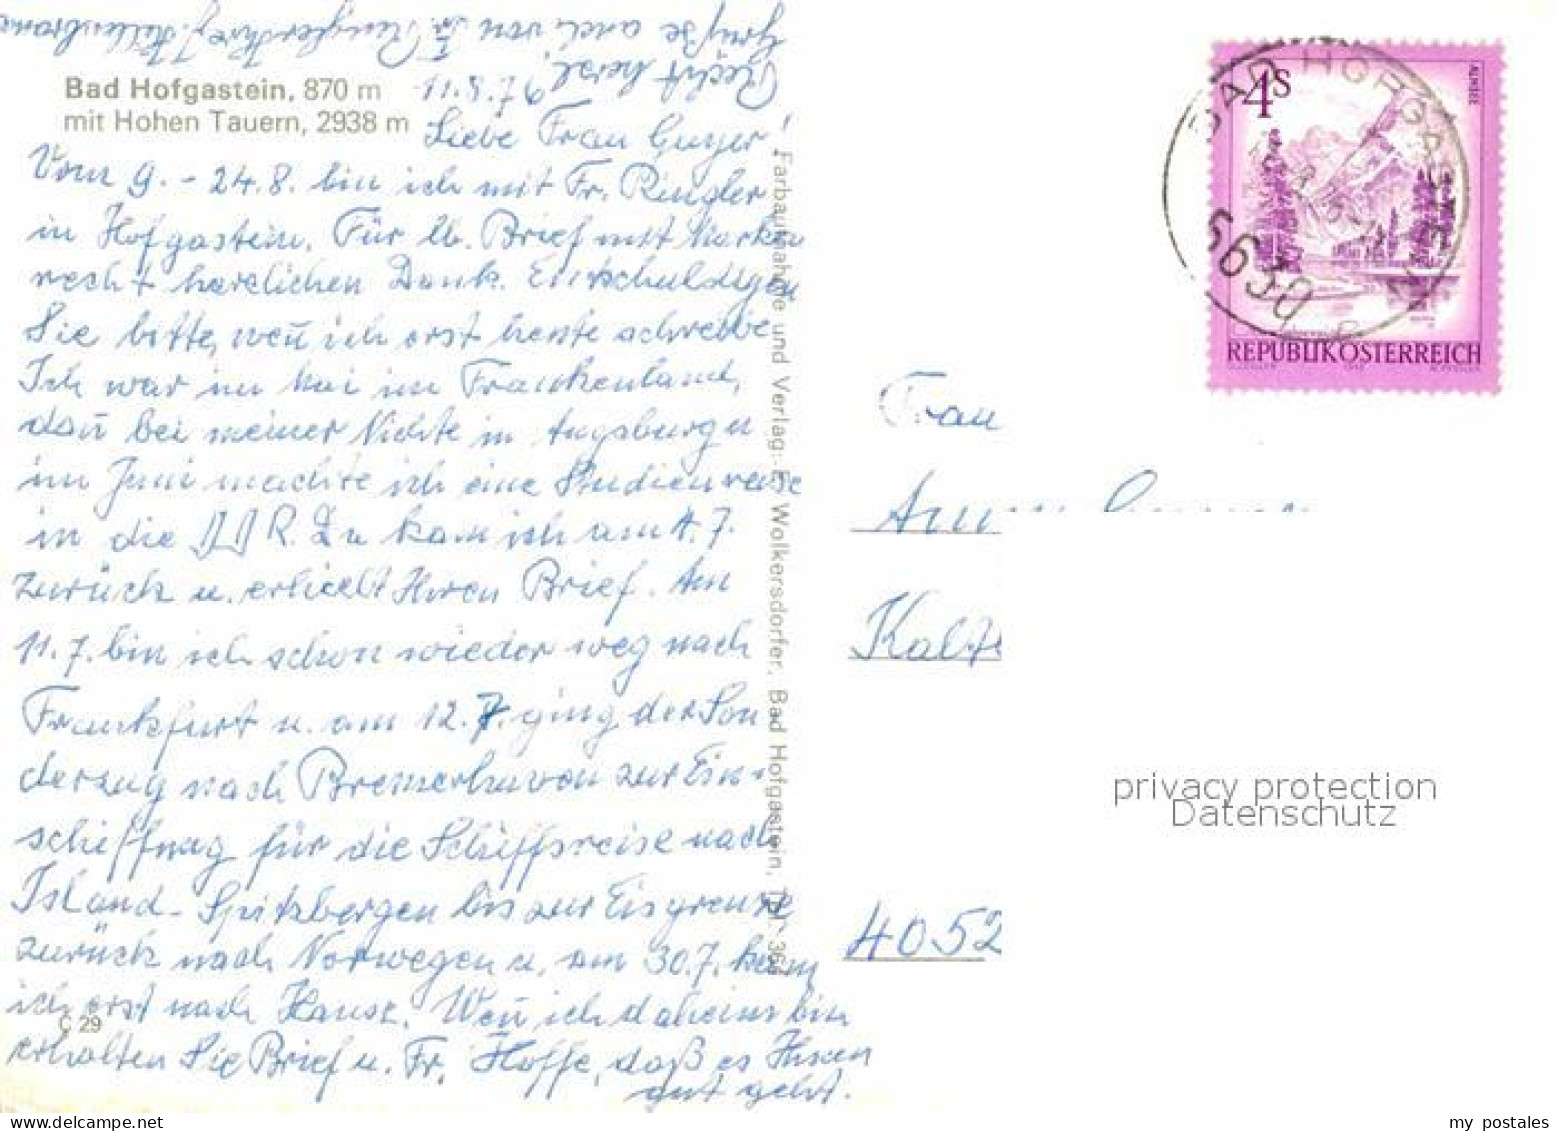 Bad Hofgastein, 870 m
mit Hohen Tauern, 2938 m
11.8.76
Liebe Frau Gurzer!
Vom 9. - 24.8. bin ich mit Fr. Ringler
in Hofgastein. Für lb. Brief mit Marken
recht herzlichen Dank. Entschuldigen
Sie bitte, weñ ich erst heute schreibe
Ich war im Mai im Frankenland,
dañ bei meiner Nichte in Augsburg u
im Juni machte ich eine Studienreise
in die DDR. Zu kam ich am 4.7.
zurück u. erhielt Ihren Brief. Am
11.7. bin ich schon wieder weg nach
Frankfurt u. am 12.7. ging der Son
derzug nach Bremerhaven zur Ein-
schiffung für die Schiffsreise nach
Island - Spitzbergen bis zur Eisgrenze
zurück nach Norwegen u. am 30.7. kam
ich erst nach Hause. Weñ ich daheim bin
erhalten Sie Brief u. Fr. Hoffe, daß es Ihnen
gut geht.
Recht herzl.
Grüße auch von Fr. Ringler Ihre
Farbaufnahme und Verlag: E. Wolkersdorfer, Bad Hofgastein, Tel. 364
C 29
4 S
ALMSEE
REPUBLIK ÖSTERREICH
BAD HOFGASTEIN
5630
Frau
4052
privacy protection
Datenschutz
my postales